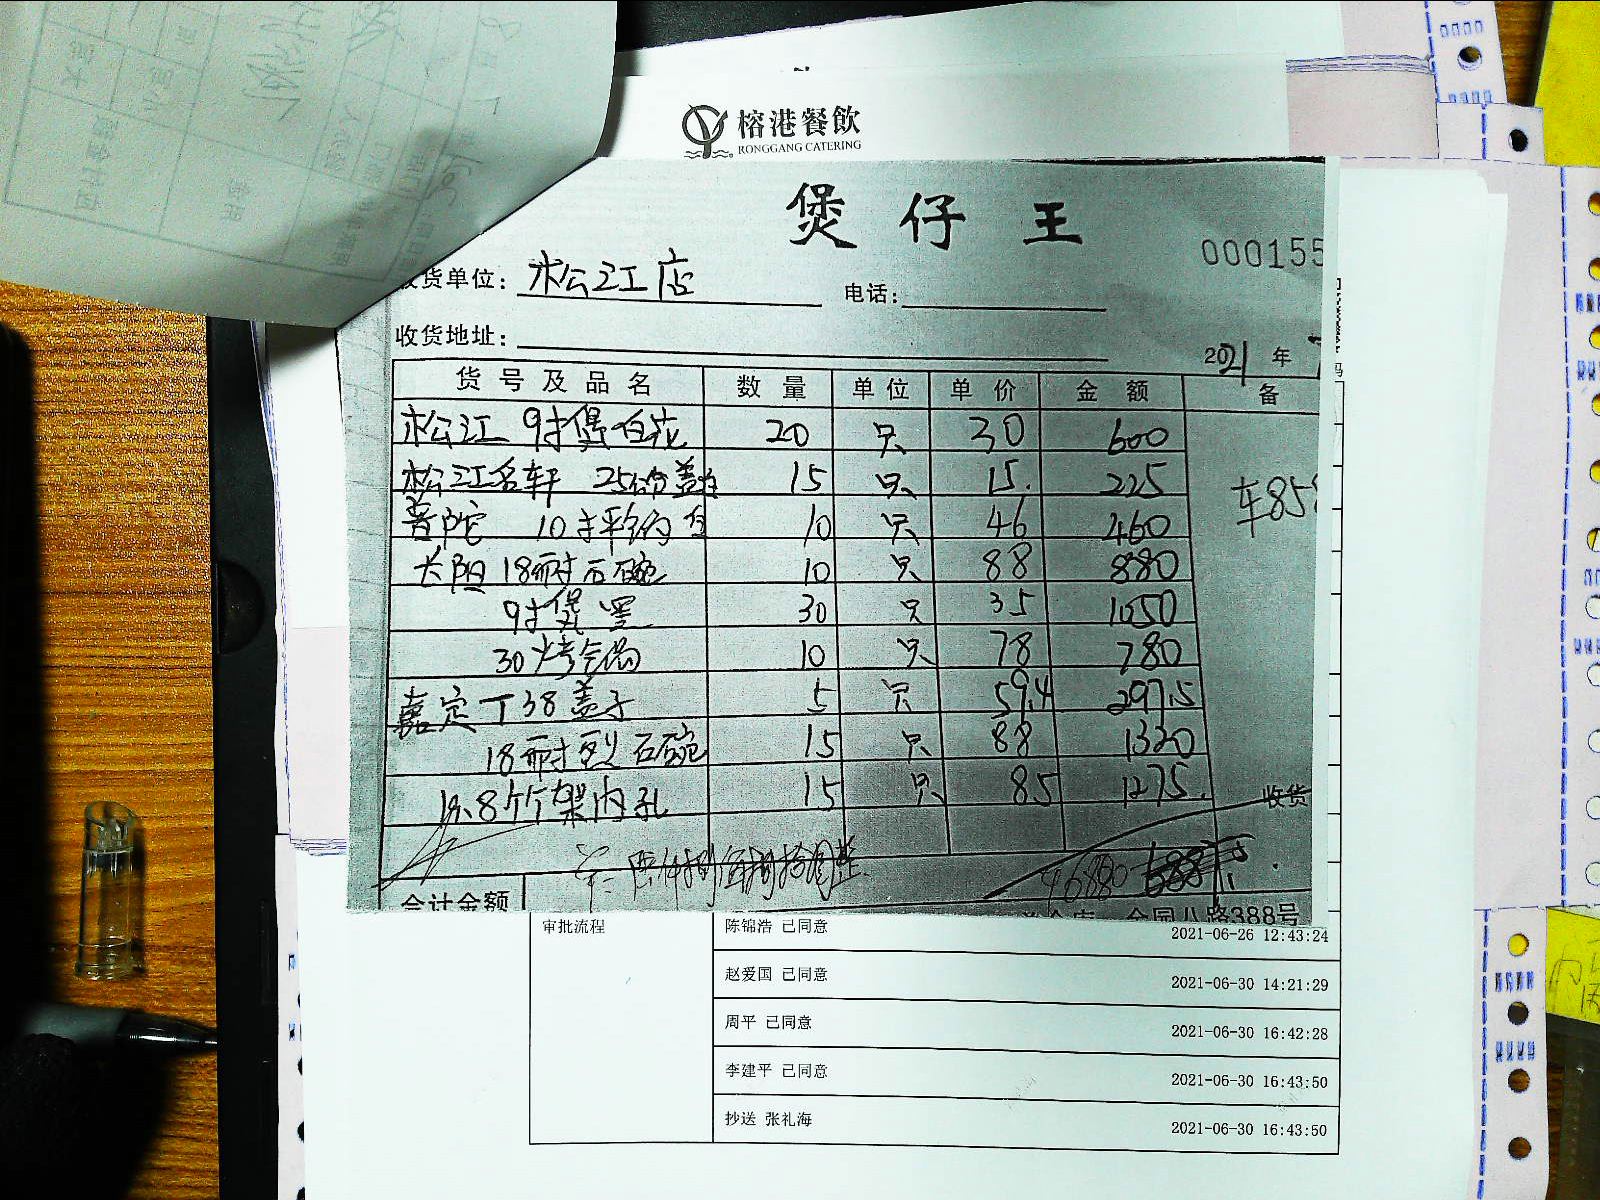 榕港餐飲
RONGGANG CATERING
煲仔王
000155
收货单位: 松江店 电话:
收货地址:
2021年
货号及品名 数量 单位 单价 金额 备
松江 9寸煲白花 20 只 30 600
松江名轩 25公分盖 15 只 15. 225 车85
普陀 10寸平锅 10 只 46 460
长阳 18耐 石碗 10 只 88 880
9寸煲 黑 30 只 35 1050
30烤全锅 10 只 78 780
嘉定 T38盖子 5 只 59.4 297.5
18耐烈石碗 15 只 88 1320
18.8竹架内孔 15 只 85 1275.
收货
合计金额
388号
审批流程
陈锦浩 已同意 2021-06-26 12:43:24
赵爱国 已同意 2021-06-30 14:21:29
周平 已同意 2021-06-30 16:42:28
李建平 已同意 2021-06-30 16:43:50
抄送 张礼海 2021-06-30 16:43:50